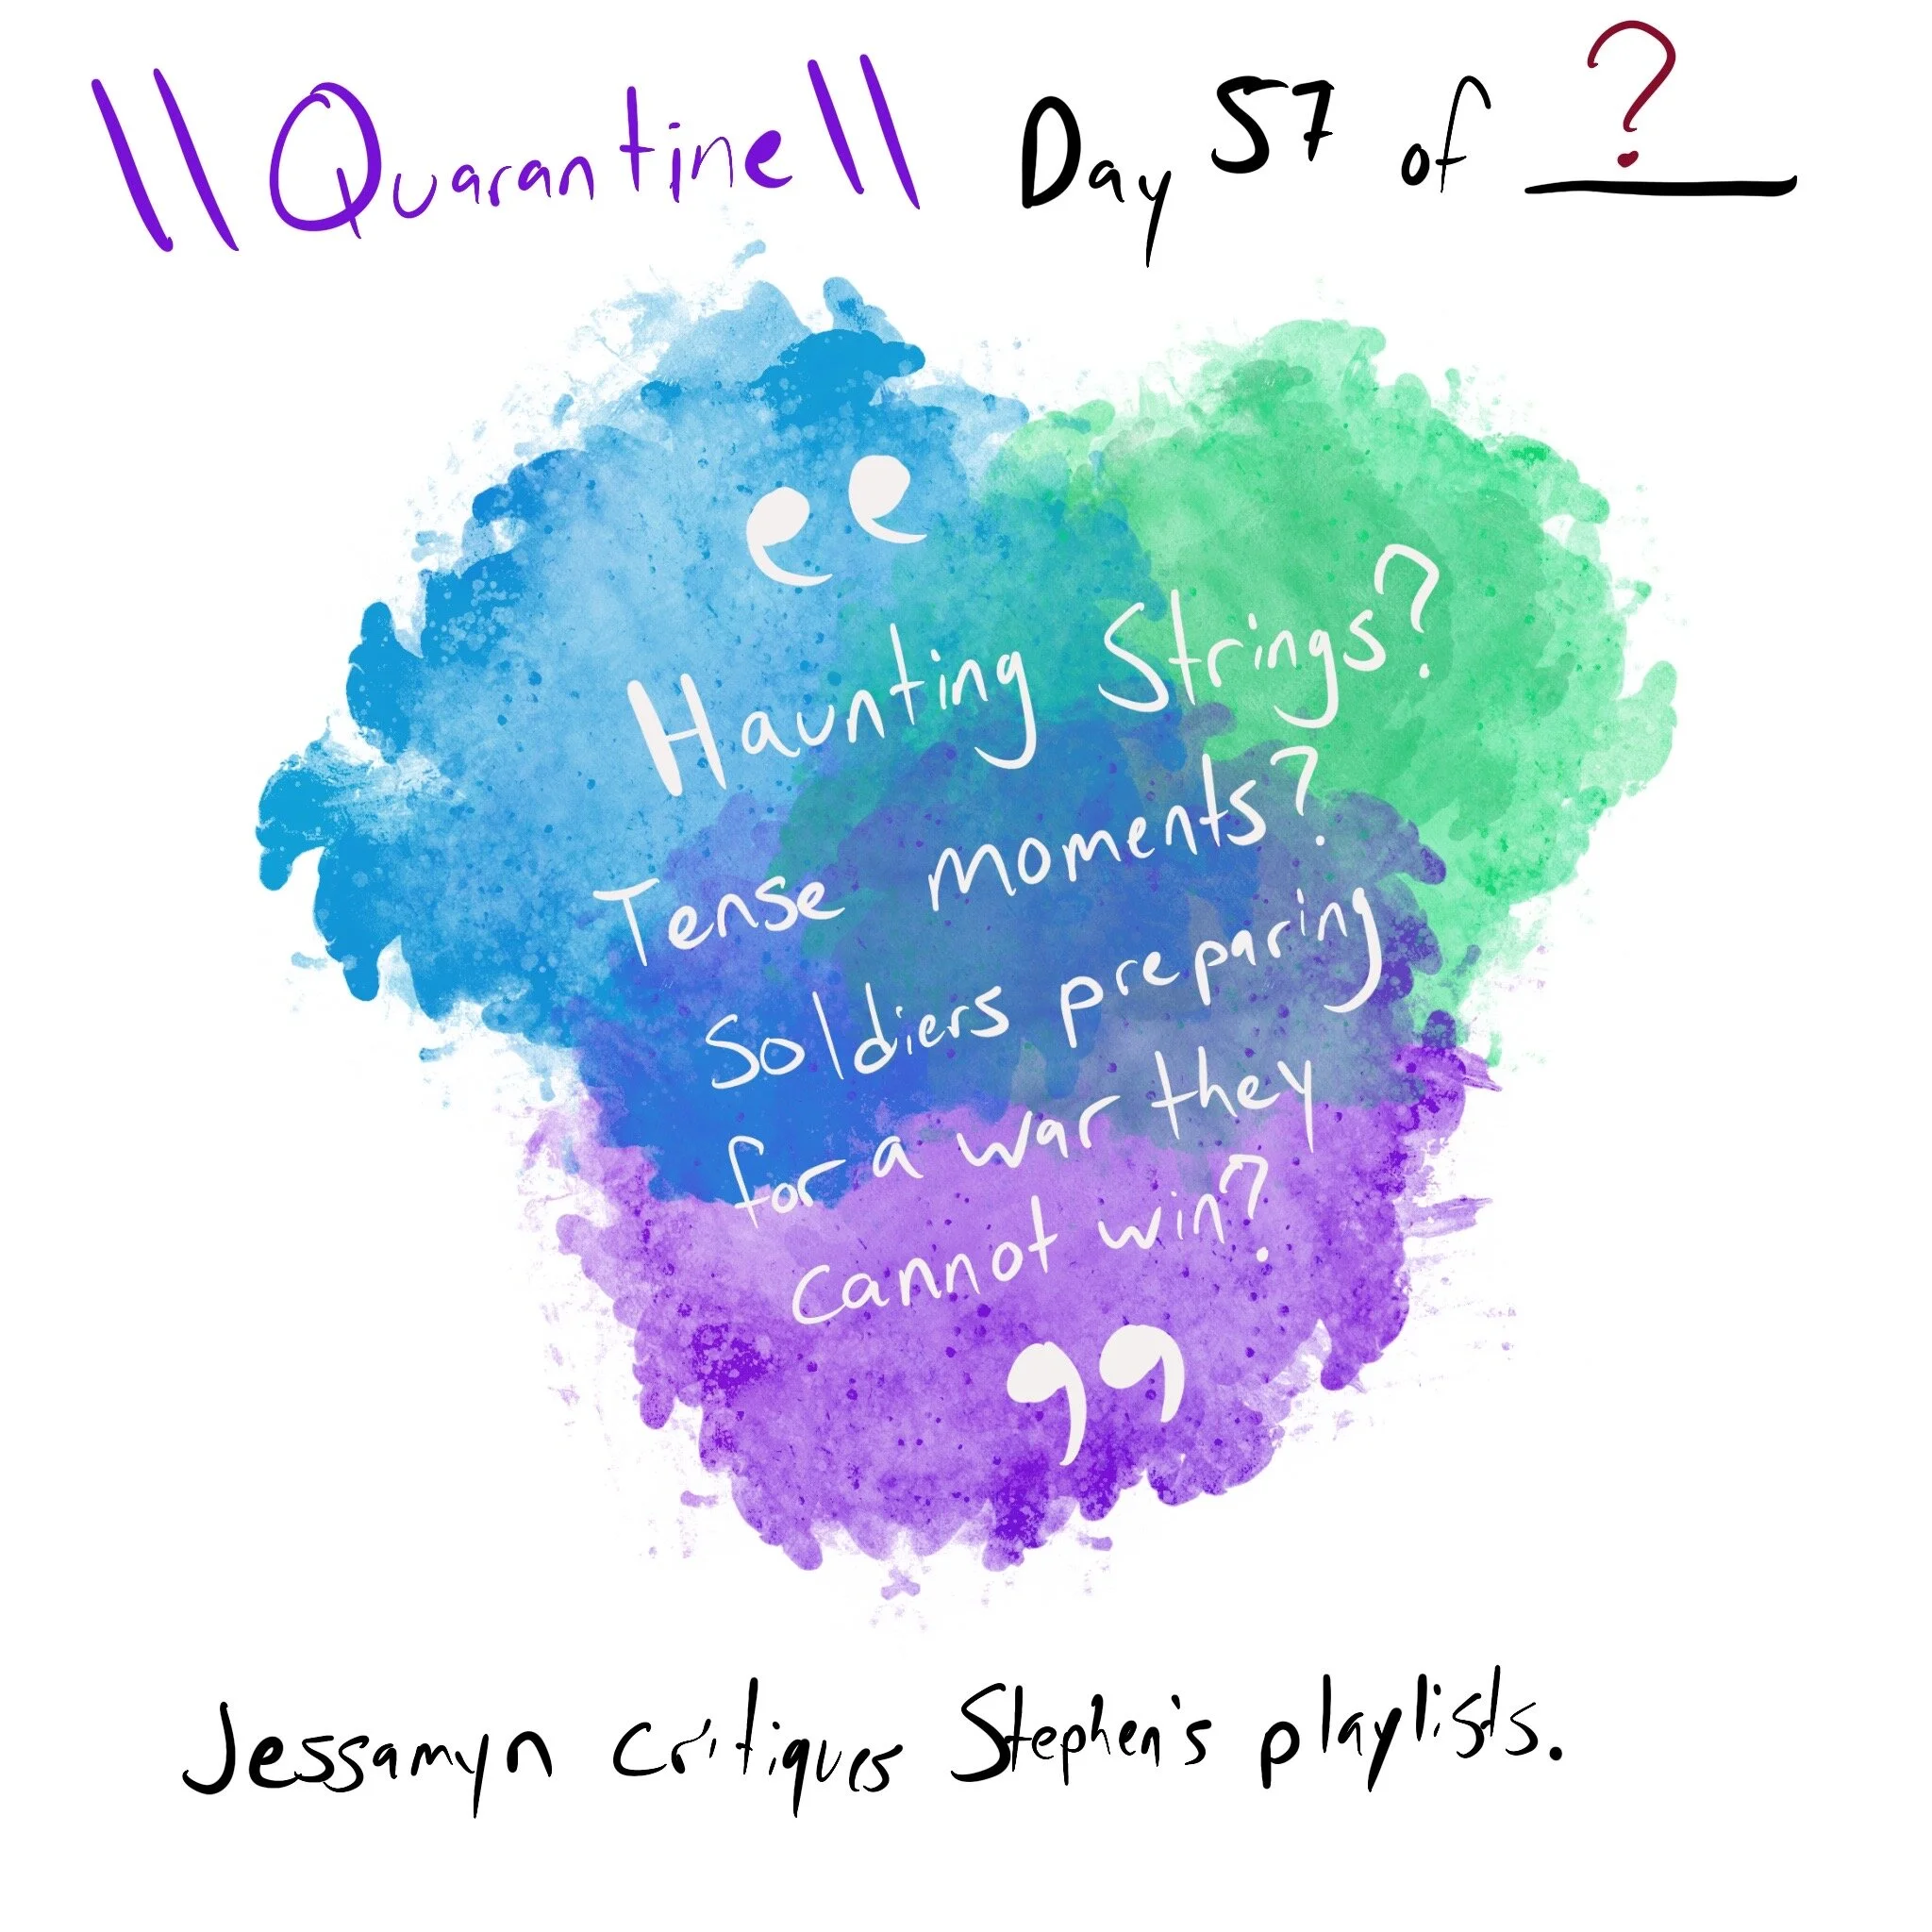 \\Quarantine\\ Day 57 of ?
“
Haunting Strings?
Tense moments?
Soldiers preparing
for a war they
cannot win?
”
Jessamyn critiques Stephen's playlists.